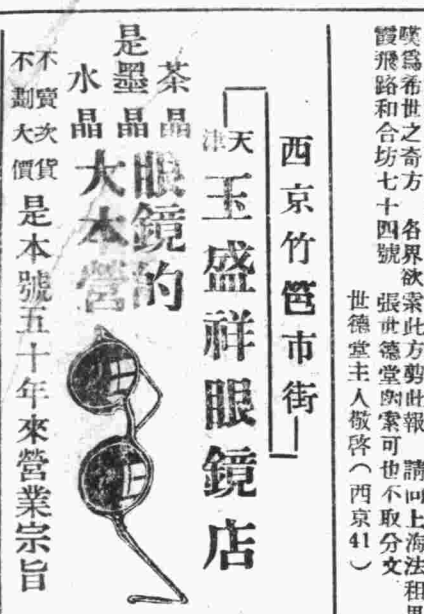 嘆爲希世之奇方 各界欲索此方剪此報 請向上海法租界
霞飛路和合坊七十四號 張世德堂函索可也不取分文
世德堂主人敬啓(西京41)
西京竹笆市街
天津
玉盛祥眼鏡店
是
茶晶
墨晶
水晶
眼鏡的
大本營
不賣次貨
不劃大價
是本號五十年來營業宗旨